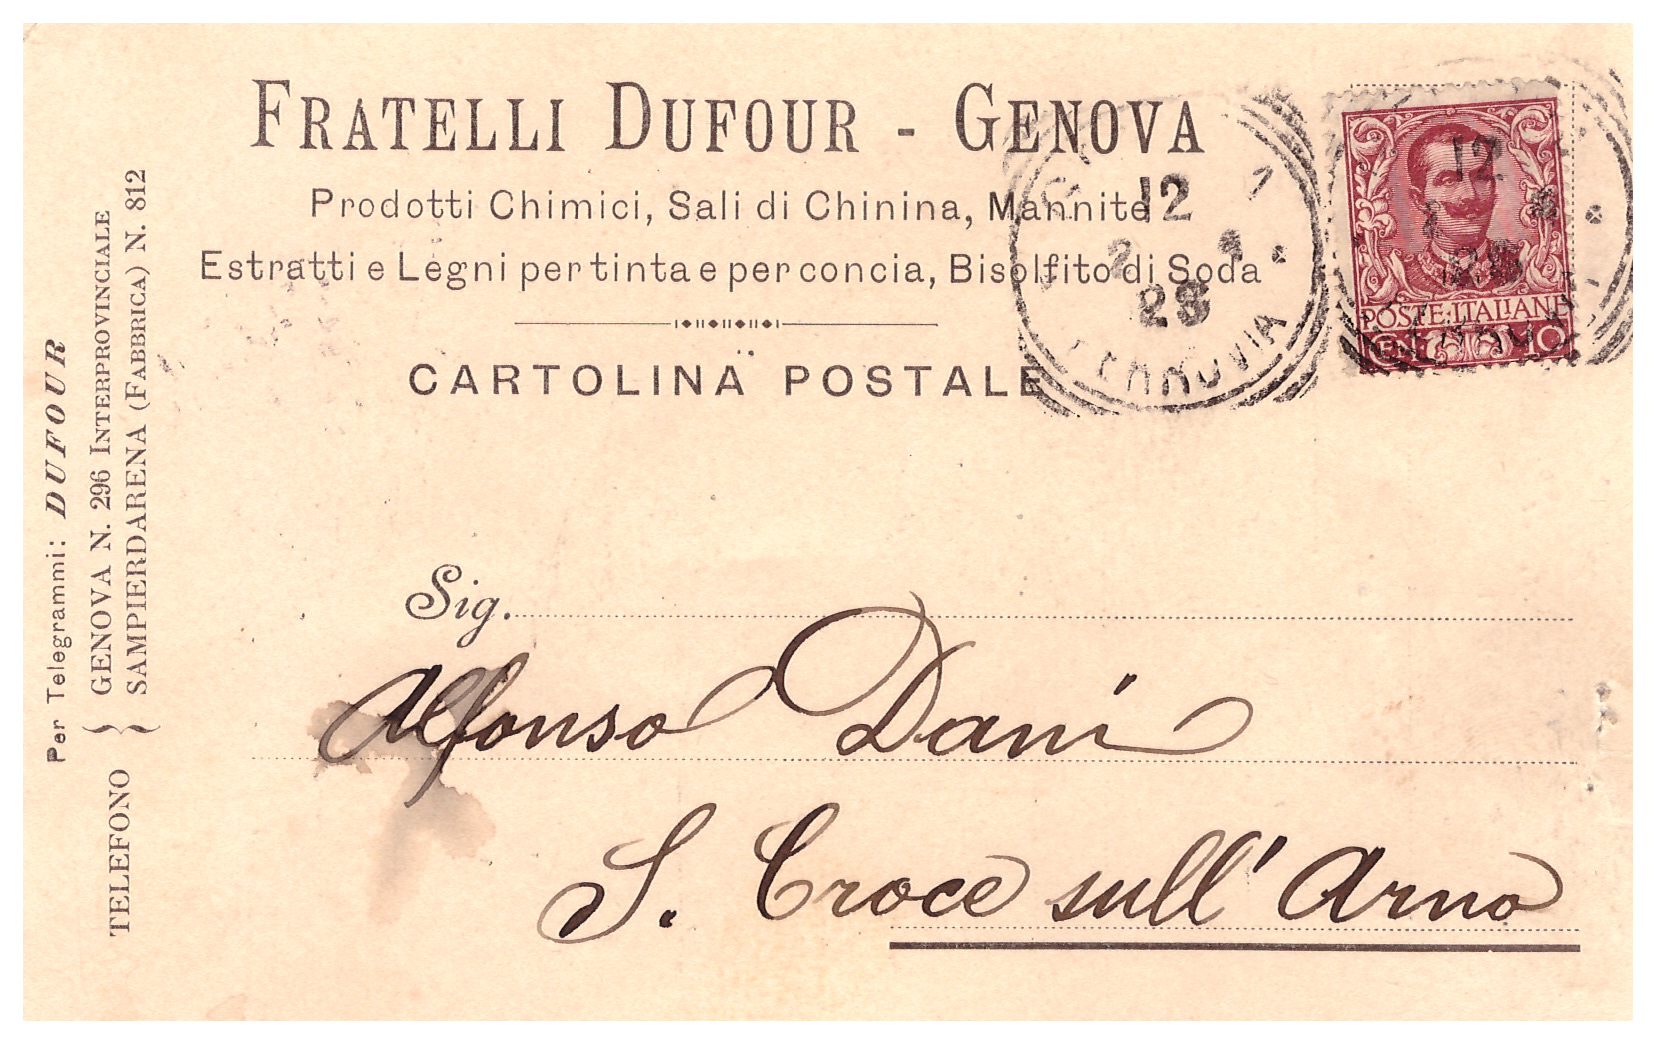 FRATELLI DUFOUR - GENOVA
Prodotti Chimici, Sali di Chinina, Mannite
Estratti e Legni per tinta e per concia, Bisolfito di Soda
CARTOLINA POSTALE
Per Telegrammi: DUFOUR
TELEFONO
GENOVA N. 296 INTERPROVINCIALE
SAMPIERDARENA (FABBRICA) N. 812
12
FERROVIA
12
POSTE ITALIANE
CENT 10
Sig.
Alfonso Dani
S. Croce sull' Arno